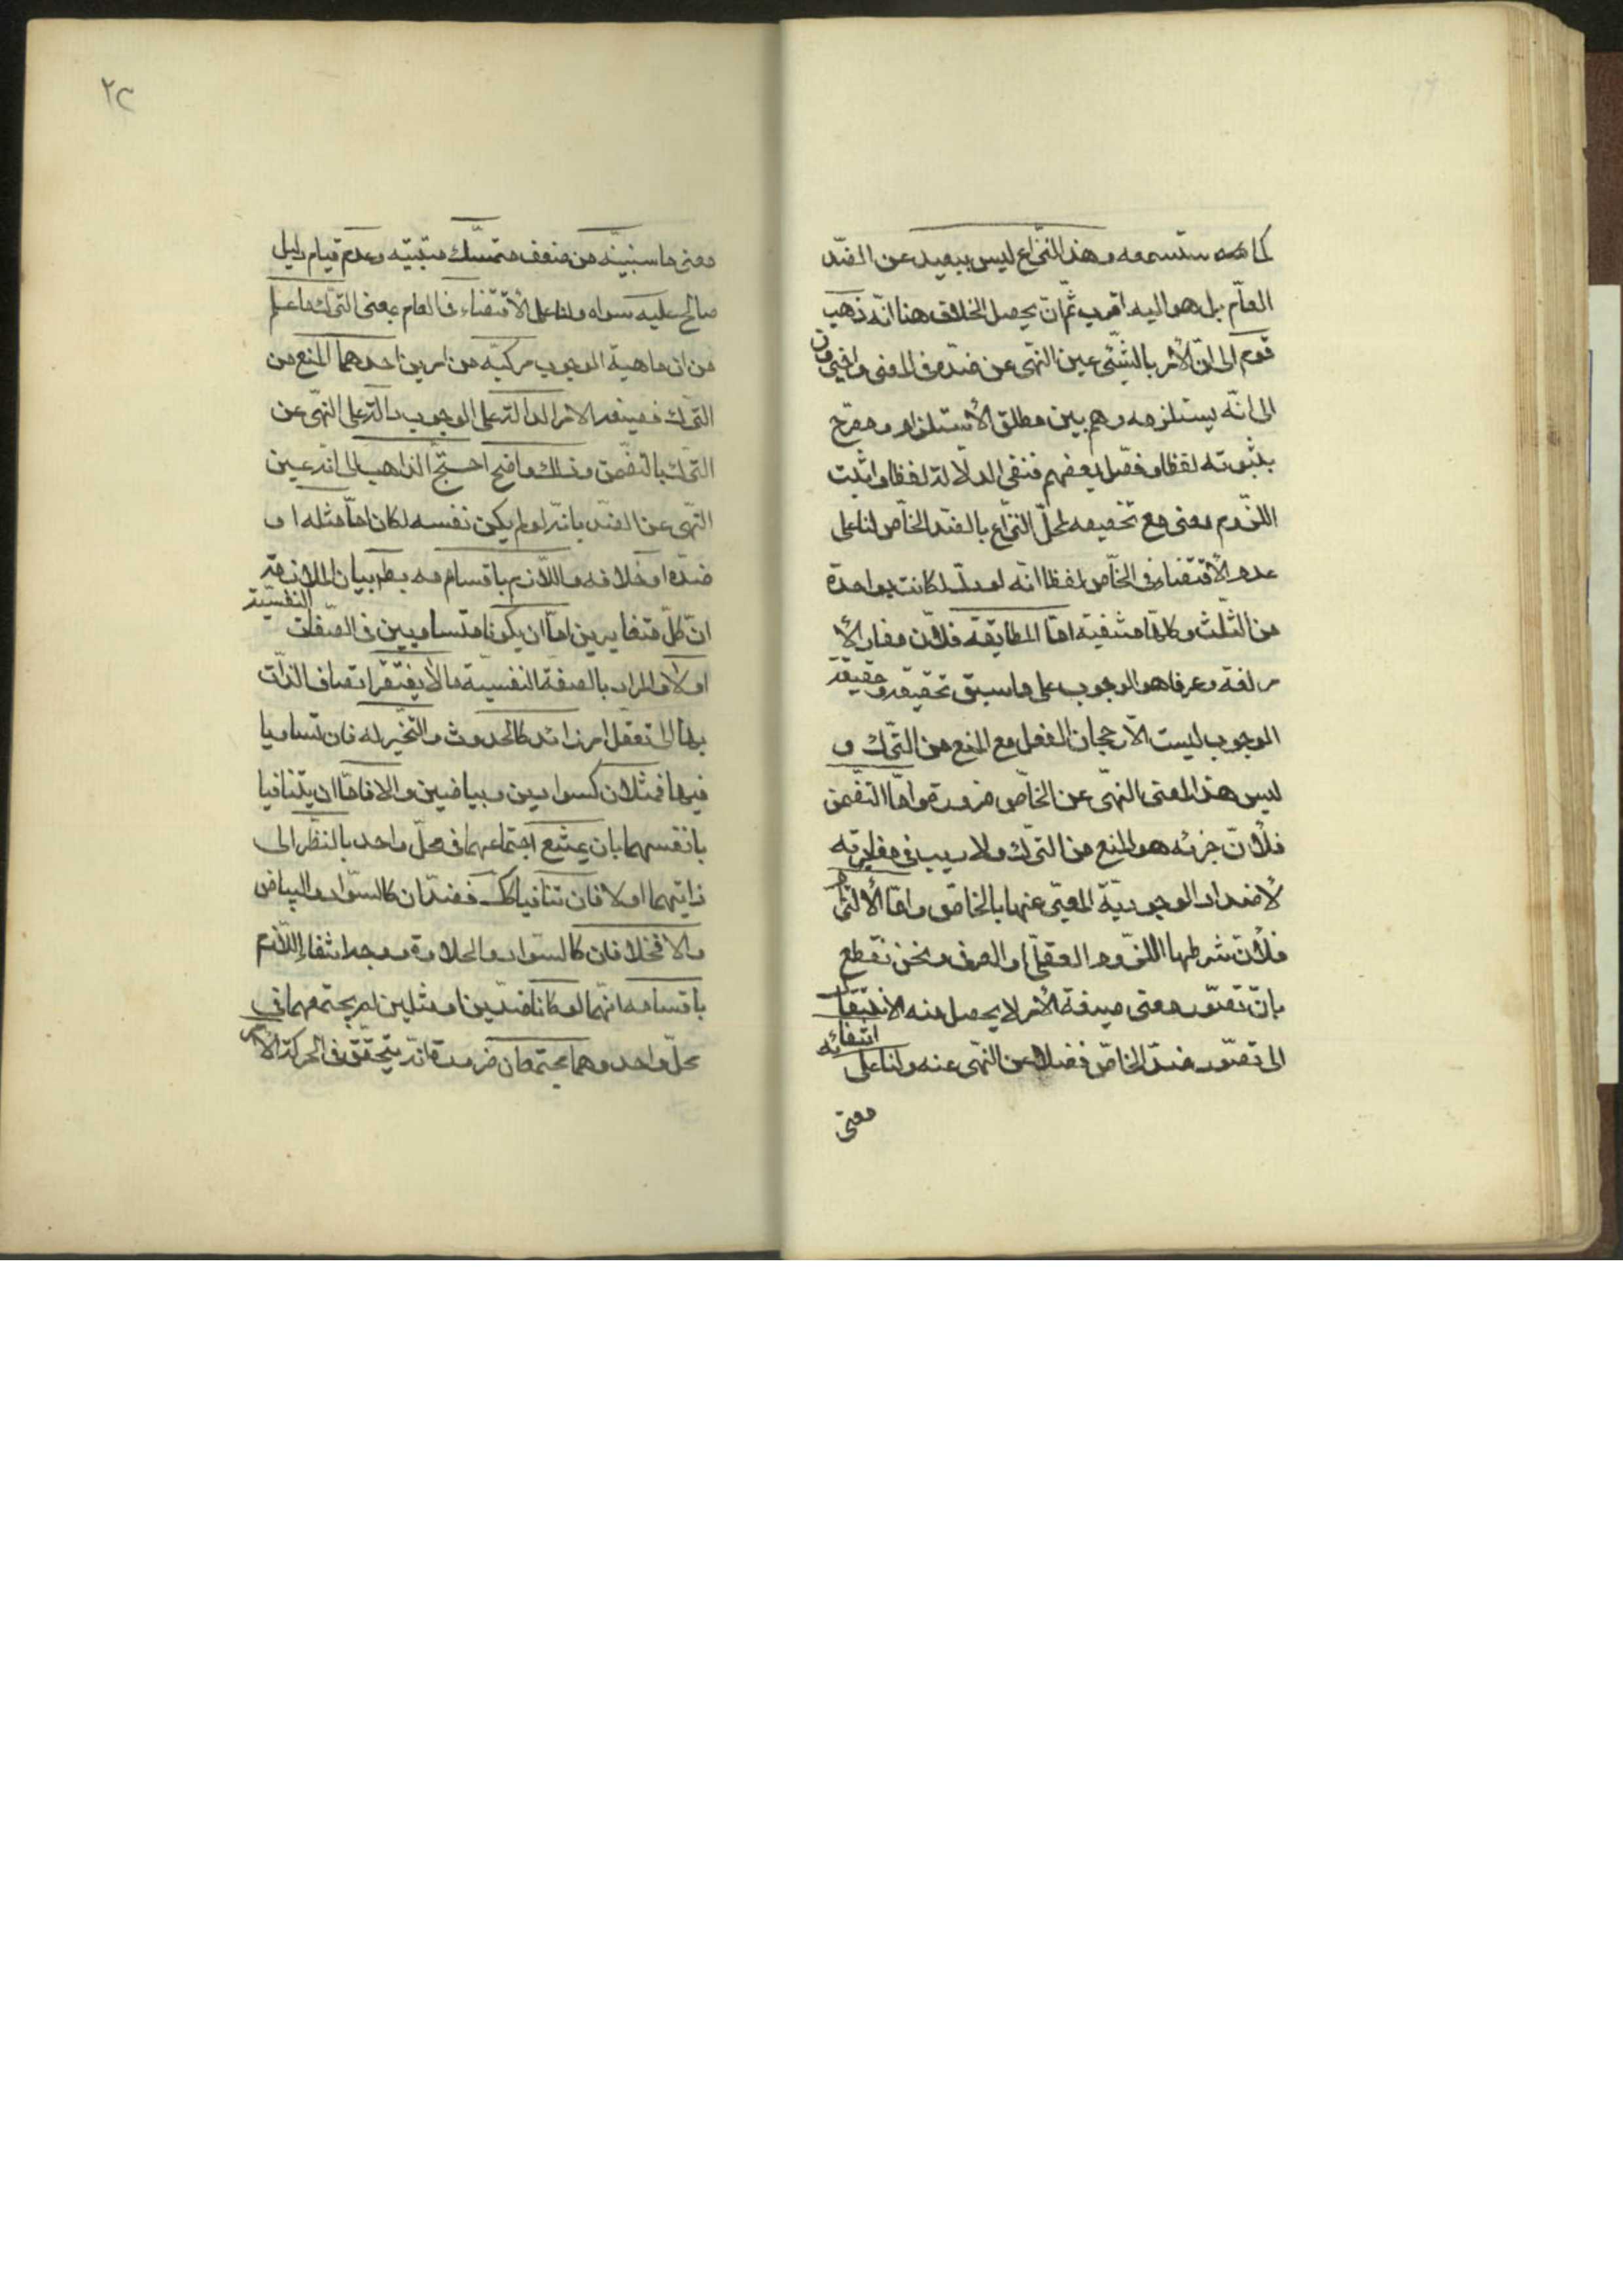 كما ستسمعه وهذا النزاع ليس ببعيد عن الضد
العام بل هو اليه اقرب ثم ان محصل الخلاف هنا انه ذهب
قوم الى ان الأمر بالشئ عين النهى عن ضده فى المعنى واخرون
الى انه يستلزمه وهم بين مطلق الأستلزام ومصرح
بثبوته لفظا وفصل بعضهم فنفى الدلالة لفظا واثبت
اللزوم معنى مع تخصيصه لمحل النزاع بالضد الخاص لنا على
عدم الأقتضاء فى الخاص لفظا انه لو دل لكانت بواحدة
من الثلث وكلها منتفية اما المطابقة فلان مفاد الأ
مر لغة وعرفا هو الوجوب على ما سبق تحقيقه وحقيقة
الوجوب ليست الا رجحان الفعل مع المنع من الترك و
ليس هذا المعنى النهى عن الخاص ضرورة واما التضمن
فلان جزئه هو المنع من الترك ولا ريب فى مغايرته
لأضداد الوجودية المعبر عنها بالخاص واما الألتزام
فلان شرطها اللزوم العقلى او العرفى ونحن نقطع
بان تصور معنى صيغة الأمر لا يحصل منه الانتقال
الى تصور ضد الخاص فضلا عن النهى عنه ولنا على انتفائه
معنى
٢٢
معنى ما سنبينه من ضعف متمسك مثبتيه وعدم قيام دليل
صالح عليه سواه ولنا على الأقتضاء فى العام بمعنى الترك ما علم
من ان ماهية الوجوب مركبة من امرين احدهما المنع من
الترك فصيغة الامر الدالة على الوجوب دالة على النهى عن
الترك بالتضمن وذلك واضح احتج الذاهب الى انه عين
النهى عن الضد بانه لو لم يكن نفسه لكان اما مثله او
ضده او خلافه واللازم باقسامه باطل بيان الملازمة
ان كل متغايرين اما ان يكونا متساويين فى الصفات النفسية
او لا والمراد بالصفة النفسية ما لا يفتقر اتصاف الذات
بها الى تعقل امر زائد كالحدوث والتحيز له فان تساويا
فيها فمثلان كسوادين وبياضين والا فاما ان يتنافيا
بانفسهما بان يمتنع اجتماعهما فى محل واحد بالنظر الى
ذاتيهما او لا فان تنافيا كك فضدان كالسواد والبياض
والا فخلافان كالسواد والحلاوة ووجه انتفاء اللازم
باقسامه انهما لو كانا ضدين او مثلين لم يجتمعا فى
محل واحد وهما يجتمعان ضرورة انه يتحقق فى الحركة الأمر